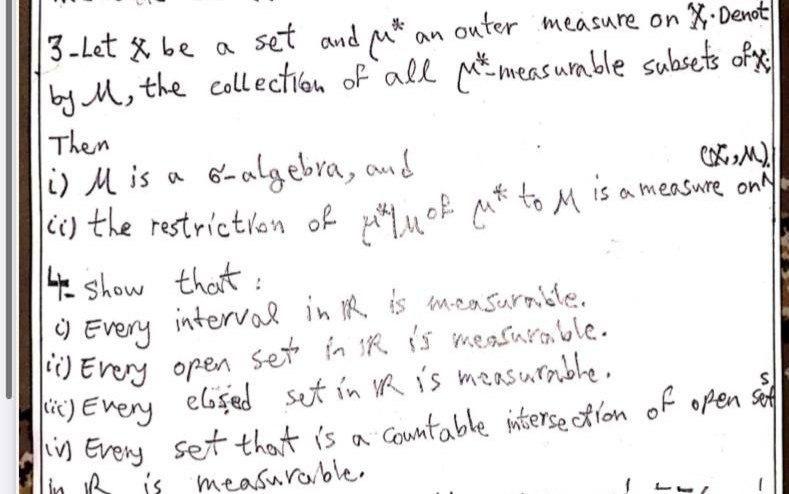 3-Let X be a set and μ* an outer measure on X. Denot
by M, the collection of all μ*-measurable subsets of X;
Then
i) M is a σ-algebra, and
(X, M).
ii) the restriction of μ*|M of μ* to M is a measure on ^
4- Show that :
i) Every interval in IR is measurable.
ii) Every open set in IR is measurable.
iii) Every closed set in IR is measurable.
iv) Every set that is a countable intersection of open sets
in IR is measurable.